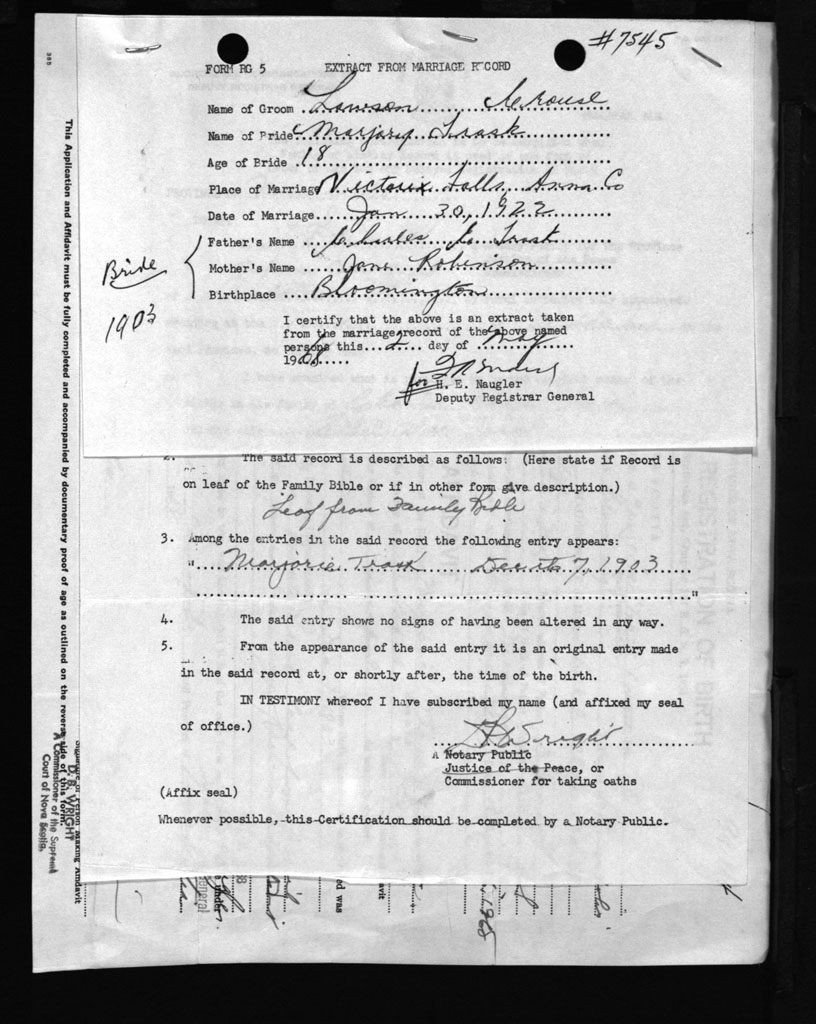 #7545
FORM RG 5 EXTRACT FROM MARRIAGE RECORD
Name of Groom Lawson Crouse
Name of Bride Marjory Trask
Age of Bride 18
Place of Marriage Victoria Falls, Anna Co
Date of Marriage Jan 30, 1922
Father's Name Charles E. Trask
Mother's Name Jane Robinson
Birthplace Bloomington
Bride
1903
I certify that the above is an extract taken
from the marriage record of the above named
persons this 2 day of May
1968
for H. E. Naugler
Deputy Registrar General
2. The said record is described as follows: (Here state if Record is
on leaf of the Family Bible or if in other form give description.)
Leaf from Family Bible
3. Among the entries in the said record the following entry appears:
" Marjorie Trask Dec 7, 1903
"
4. The said entry shows no signs of having been altered in any way.
5. From the appearance of the said entry it is an original entry made
in the said record at, or shortly after, the time of the birth.
IN TESTIMONY whereof I have subscribed my name (and affixed my seal
of office.)
Wright
A Notary Public
Justice of the Peace, or
Commissioner for taking oaths
(Affix seal)
Whenever possible, this Certification should be completed by a Notary Public.
This Application and Affidavit must be fully completed and accompanied by documentary proof of age as outlined on the reverse side of this form.
D. B. WRIGHT
A Commissioner of the Supreme
Court of Nova Scotia.